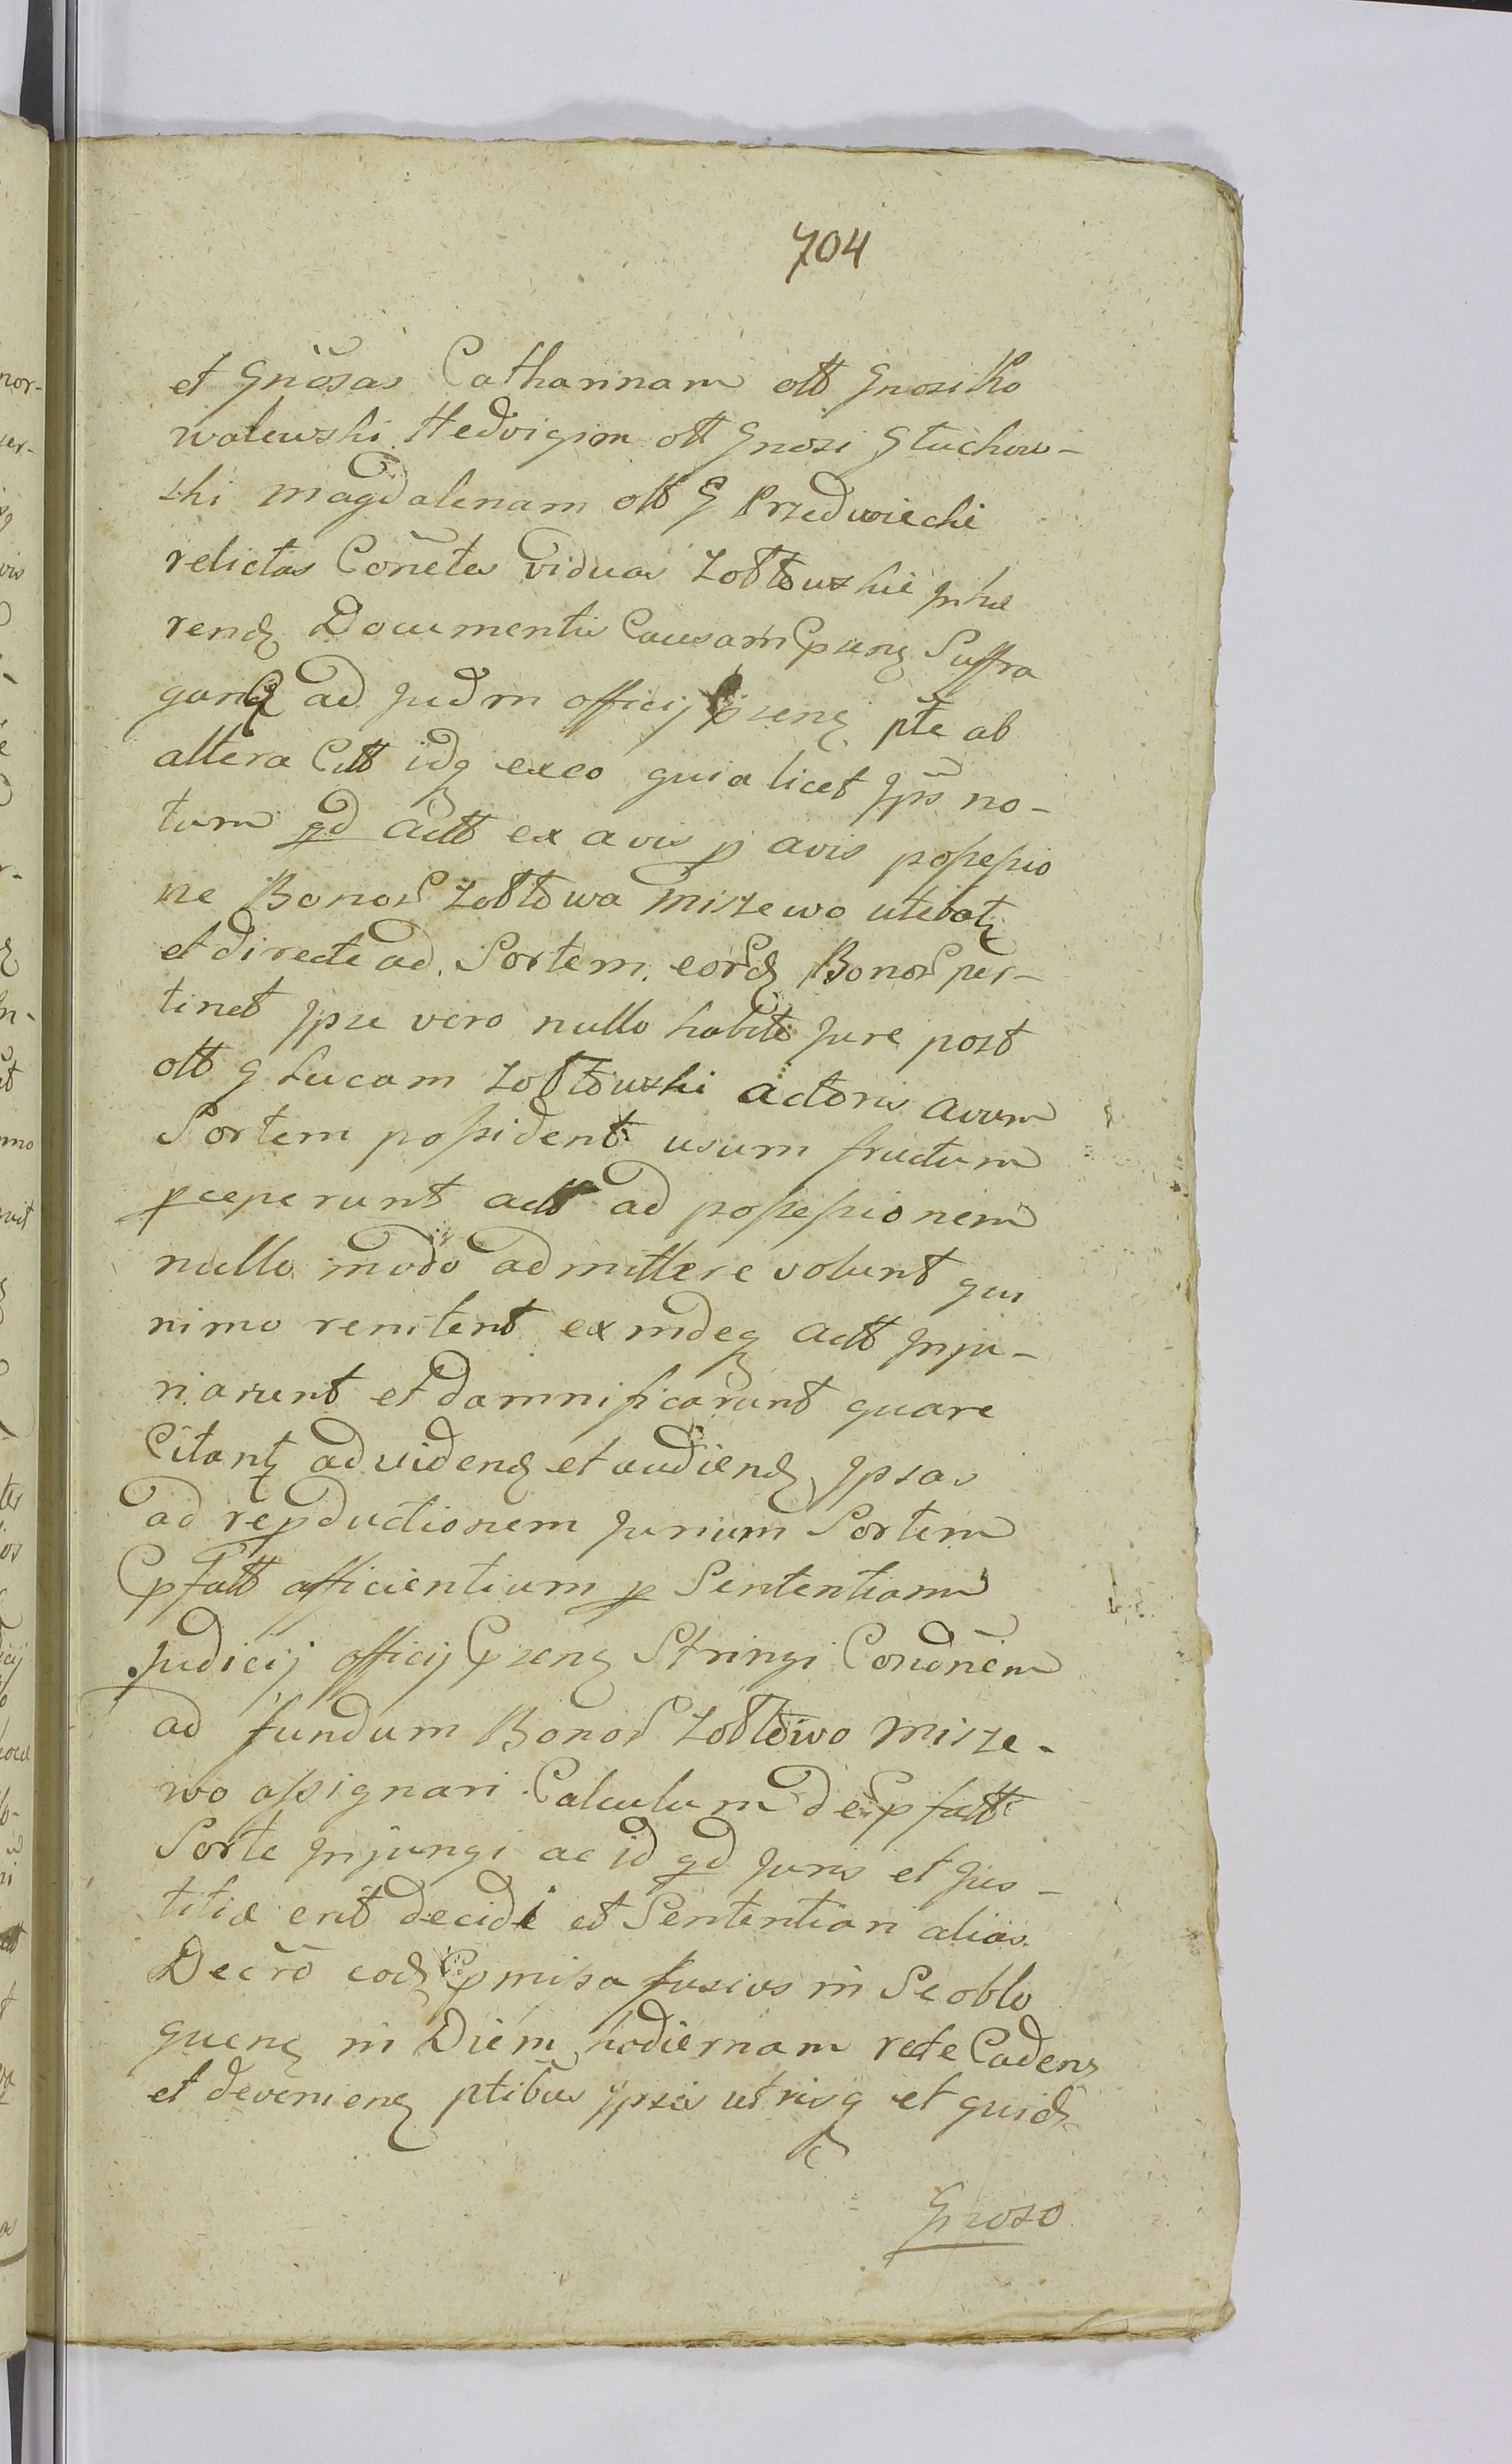 704
et Gnosas Catharinam olt Gnosi Ko
walewski Hedvigim olt Gnosi Głuchow-
ski Magdalenam olt G Przedwiecki
relictas Conctes viduas Zołtowskie Inhæ
rend Documentis Causam pung Suffra
gang ad Judm officij præsens pte ab
altera Citt idq exeo quia licet Ipis no-
tum qd actt ex avis p avis possessio
ne Bonor Zołtowa Miszewo utebat
et directe ad Sortem eord Bonor per-
tinet Ipse vero nullo habito Jure post
olt G Lucam Zołtowski actoris avum
Sortem possident usum fructum
pceperunt actt ad possessionem
nullo modo admittere volunt qui
nimo renitent exindeq actt Inju-
riarunt et damnificarunt quare
Citant ad vidend et audiend Ipsas
ad repductionem Jurium Sortem
pfatt afficientium p Sententiam
Judicij officij præsens Stringi Condnem
ad fundum Bonor Zołtowo Misze-
wo assignari Calculum de pfatt
Sorte Injungi ac id qd Juris et Jus-
titiæ erit decidi et Sententiari alias
Decro eod pmisa fusius in Se oblo
quens in Diem hodiernam rete Cadens
et deveniens ptibus Ipsis utrisq et quid
Gnoso